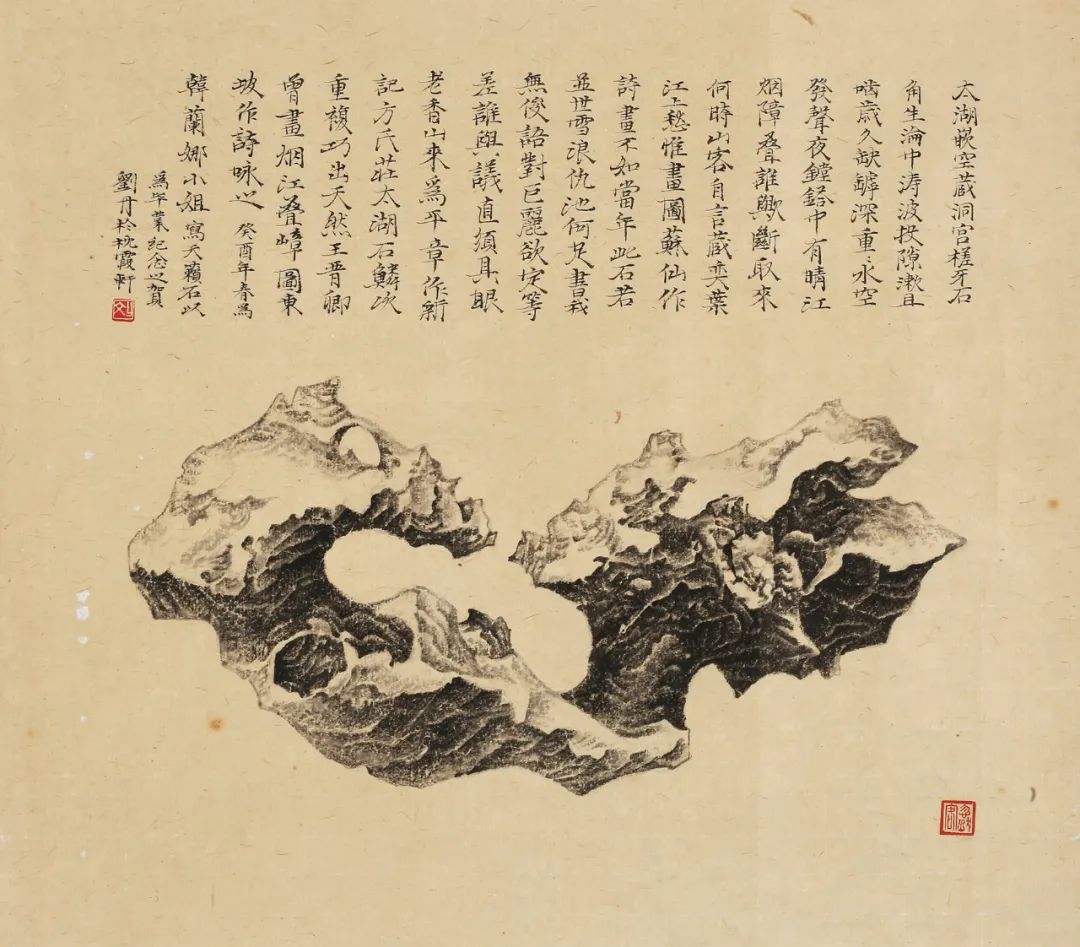 太湖嵌空藏洞宮槎牙石
角生淪中涛波投隙漱且
啮歲久缺罅深重〻水空
發聲夜鏜鎝中有晴江
烟障叠誰歟斷取來
何時山客自言藏奕葉
江上愁惟畫圖蘇仙作
詩畫不如當年此石若
並世雪浪仇池何足書我
無俊語對巨麗欲定等
差誰與議直須具眼
老香山來爲平章作新
記方氏莊太湖石鱗次
重複巧出天然王晋卿
曾畫烟江叠嶂圖東
坡作詩咏之 癸酉年春爲
韓蘭娜小姐寫天籟石以
爲毕業紀念之賀
劉丹於枕霞軒